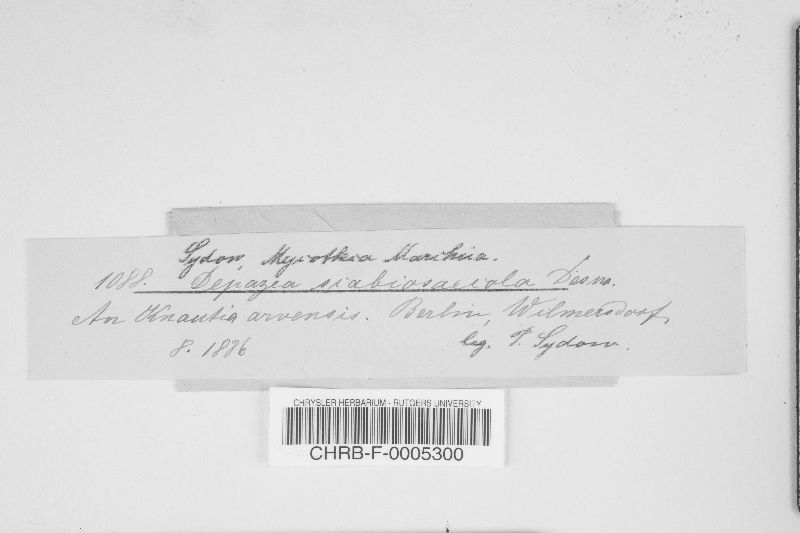 Sydow, Mycotheca Marchica.
1088. Depazea scabiosaecola Desm.
An Knautia arvensis. Berlin, Wilmersdorf,
8. 1886 leg. P. Sydow.
CHRYSLER HERBARIUM - RUTGERS UNIVERSITY
CHRB-F-0005300